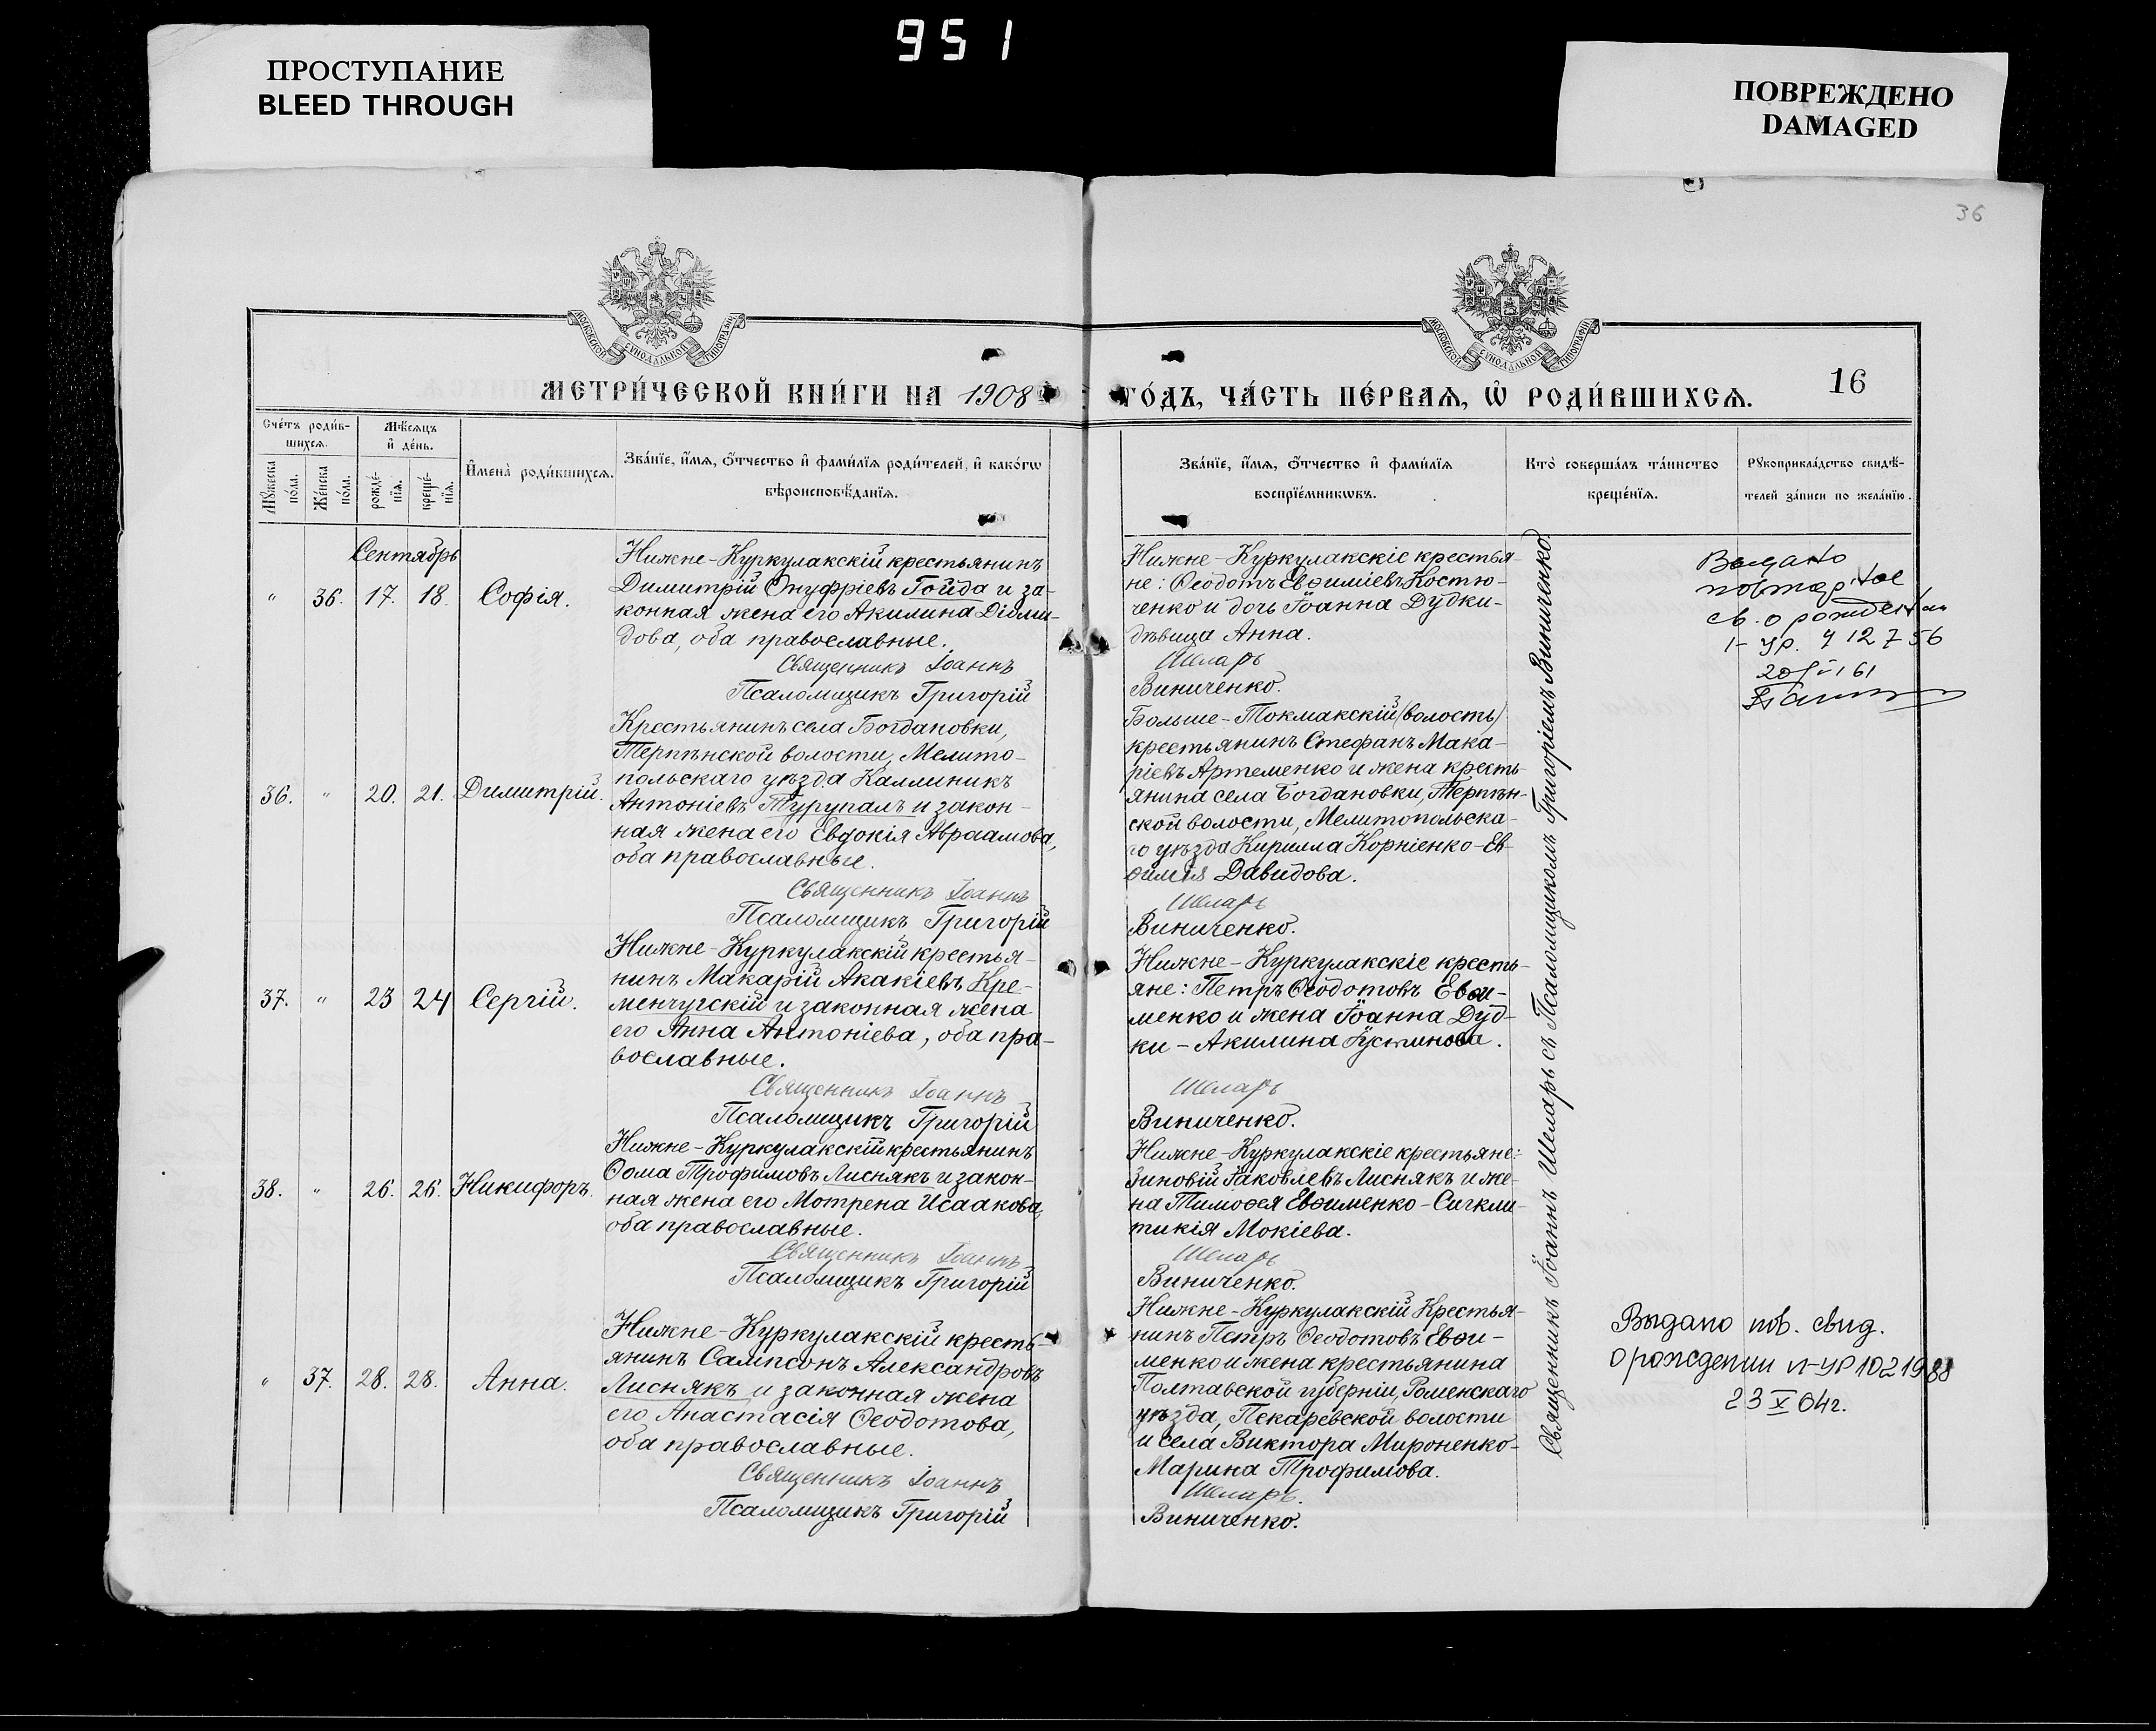 951
ПРОСТУПАНИЕ
BLEED THROUGH
ПОВРЕЖДЕНО
DAMAGED
36
МОСКОВСКОЙ СѴНОДАЛЬНОЙ ТИПОГРАФІИ
МОСКОВСКОЙ СѴНОДАЛЬНОЙ ТИПОГРАФІИ
МЕТРИ́ЧЕСКОЙ КНИ́ГИ НА 1908
ГО́ДЪ, ЧА́СТЬ ПЕ́РВАѦ, Ѡ҆ РОДИ́ВШИХСѦ.
16
Сче́тъ роди́в-
шихсѧ.
Мѣ́сѧцъ
и҆ де́нь.
Мꙋжеска
по́ла.
Же́нска
по́ла.
рожде́-
нїѧ.
креще́-
нїѧ.
И҆мена̀ роди́вшихсѧ.
Зва́нїе, и҆́мѧ, ѻ҆́тчество и҆ фами́лїѧ роди́телей, и҆ како́гѡ
вѣроисповѣ́данїѧ.
Зва́нїе, и҆́мѧ, ѻ҆́тчество и҆ фами́лїѧ
воспрїе́мникѡвъ.
Кто̀ соверша́лъ та́инство
креще́нїѧ.
Рꙋкоприкла́дство свидѣ́-
телей за́писи по жела́нїю.
Сентябрь
" 36. 17. 18. Софія.
Нижне-Куркулакскій крестьянинъ
Димитрій Онуфріевъ Гойда и за-
конная жена его Акилина Діоми-
дова, оба православные.
Священникъ Іоаннъ
Псаломщикъ Григорій
Нижне-Куркулакскіе крестья-
не: Ѳеодотъ Евѳиміевъ Костю-
ченко и дочь Іоанна Дудки-
дѣвица Анна.
Шеларь
Виниченко.
Выдано
повторное
св. о рождении
1-УР. 412756
61
36. " 20. 21. Димитрій.
Крестьянинъ села Богдановки,
Терпѣнской волости, Мелито-
польскаго уѣзда Каллиникъ
Антоніевъ Турупалъ и закон-
ная жена его Евдокія Авраамова,
оба православные.
Священникъ Іоаннъ
Псаломщикъ Григорій
Больше-Токмакскій /волость/
крестьянинъ Стефанъ Мака-
ріевъ Артеменко и жена кресть-
янина села Богдановки, Терпѣн-
ской волости, Мелитопольска-
го уѣзда Кирилла Корніенко-Ев-
ѳимія Давидова.
Шеларь
Виниченко.
37. " 23 24 Сергій.
Нижне-Куркулакскій крестья-
нинъ Макарій Акакіевъ Кре-
менчугскій и законная жена
его Анна Антоніева, оба пра-
вославные.
Священникъ Іоаннъ
Псаломщикъ Григорій
Нижне-Куркулакскіе кресть-
яне: Петръ Ѳеодотовъ Евѳи-
менко и жена Іоанна Дуд-
ки-Акилина Іустинова.
Шеларь
Виниченко.
38. " 26. 26. Никифоръ.
Нижне-Куркулакскій крестьянинъ
Ѳома Трофимовъ Лиснякъ и закон-
ная жена его Мотрена Исаакова,
оба православные.
Священникъ Іоаннъ
Псаломщикъ Григорій
Нижне-Куркулакскіе крестьяне:
Зиновій Іаковлевъ Лиснякъ и же-
на Тимоѳея Евѳименко-Сигкли-
тикія Мокіева.
Шеларь
Виниченко.
" 37. 28. 28. Анна.
Нижне-Куркулакскій кресть-
янинъ Сампсонъ Александровъ
Лиснякъ и законная жена
его Анастасія Ѳеодотова,
оба православные.
Священникъ Іоаннъ
Псаломщикъ Григорій
Нижне-Куркулакскій Крестья-
нинъ Петръ Ѳеодотовъ Евѳи-
менко и жена крестьянина
Полтавской губерніи, Роменскаго
уѣзда, Пекаревской волости
и села Виктора Мироненко-
Марина Трофимова.
Шеларь.
Виниченко.
Священникъ Іоаннъ Шеларь съ Псаломщикомъ Григоріемъ Виниченко.
Выдано пов. свид.
о рождении II-УР 1021988
23 X 64г.